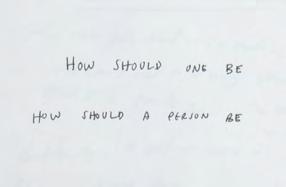 HOW SHOULD ONE BE
HOW SHOULD A PERSON BE